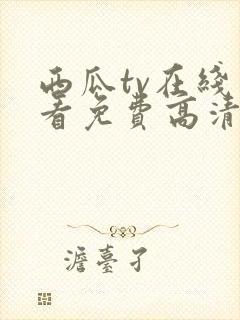 西瓜tv在綫
看免费高清
澹臺孑